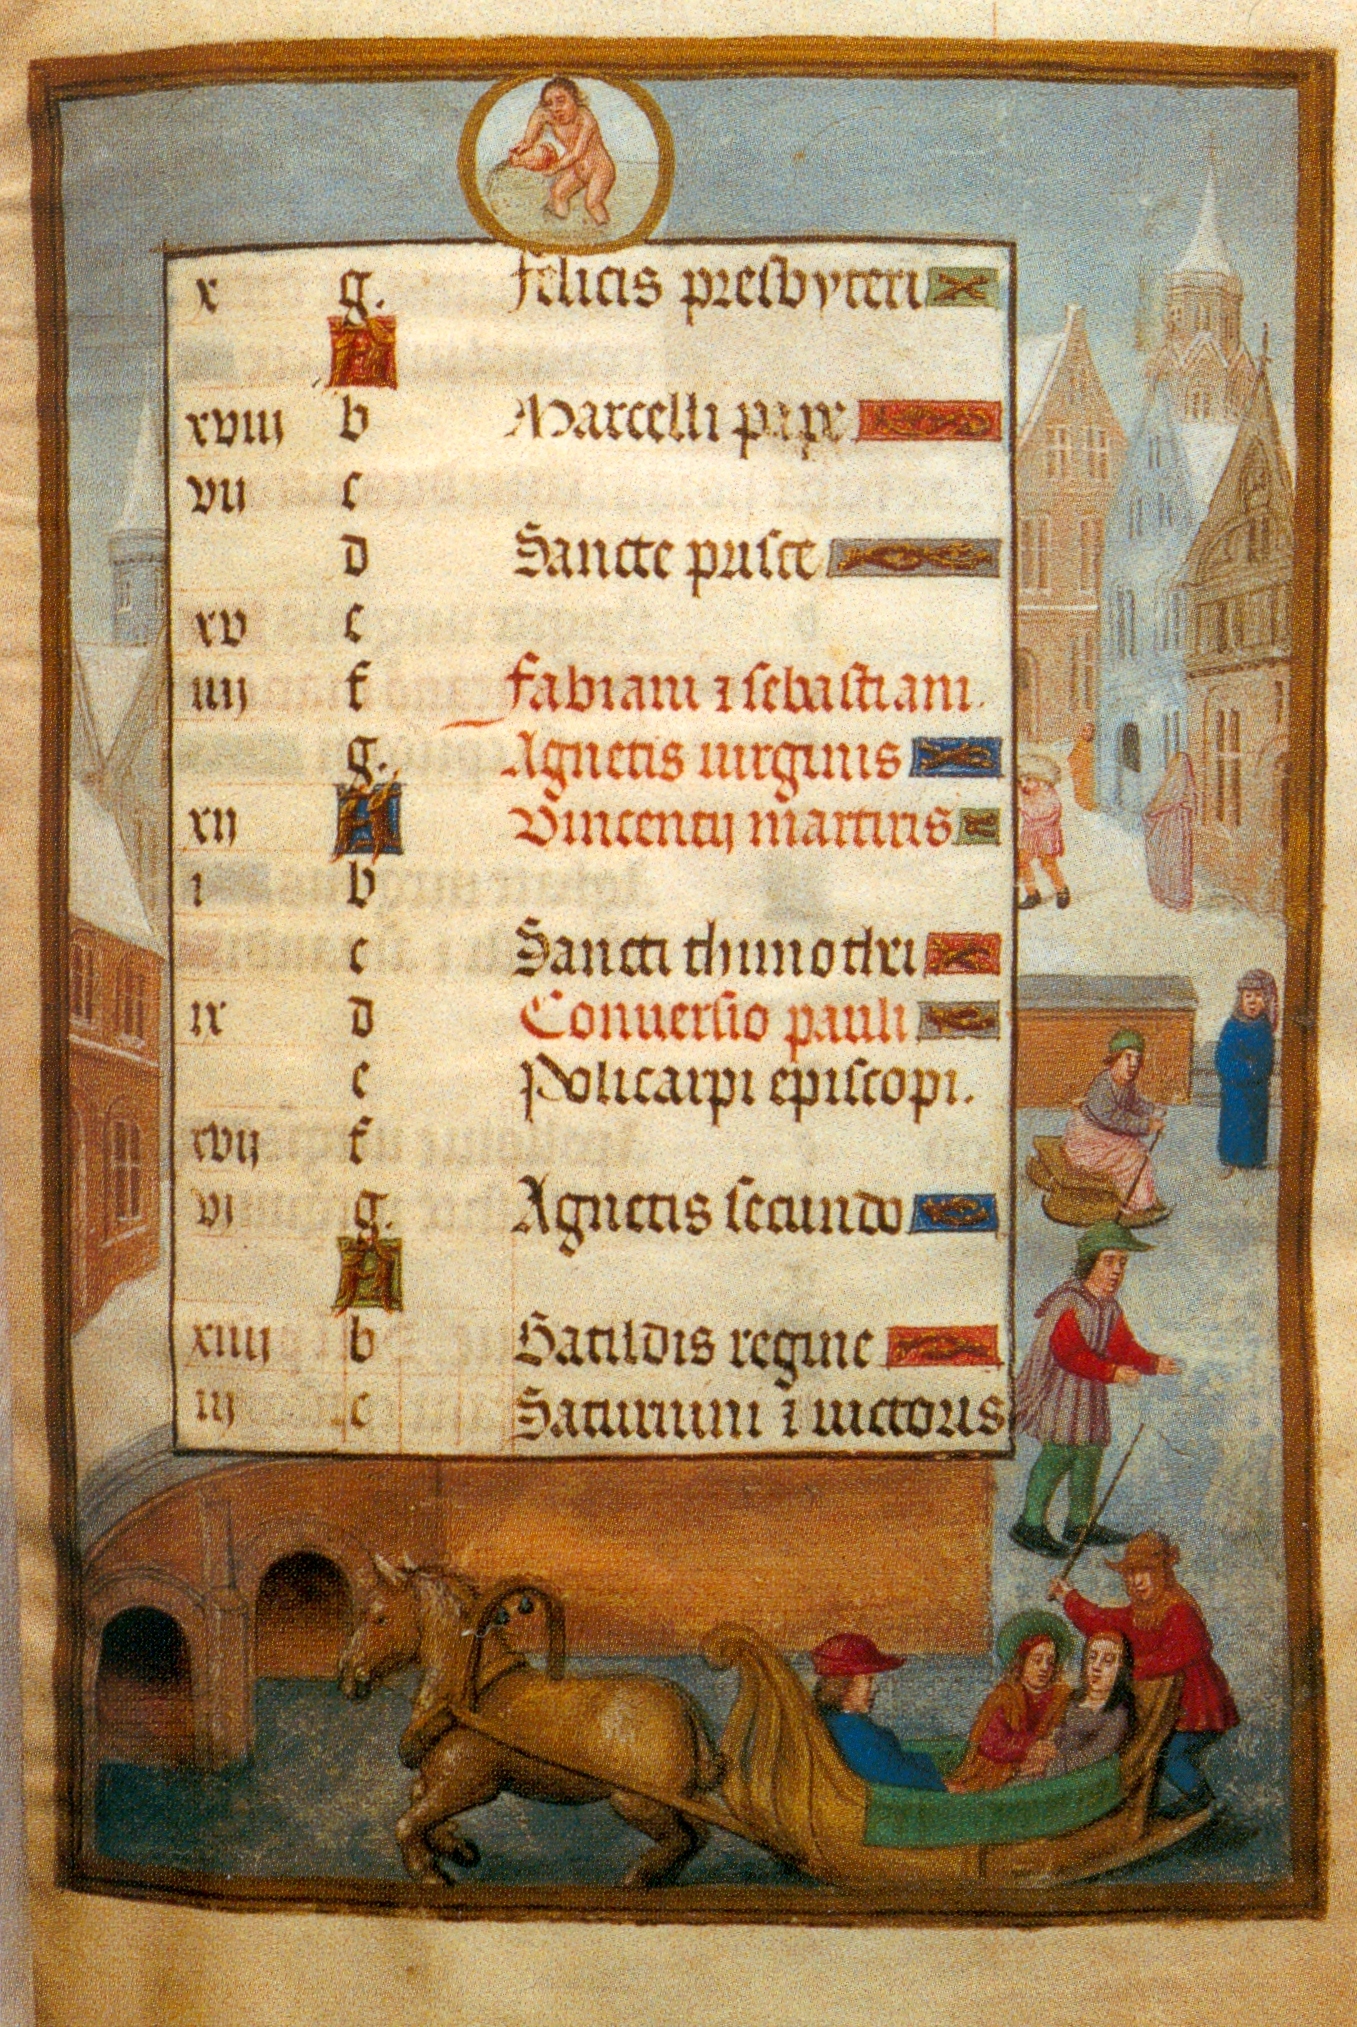 x g. felicis presbyteri
A
xviii b Marcelli pape
vii c
d Sancte prisce
xv e
iiij f fabiani ⁊ sebastiani.
g. Agnetis uirginis
xij A Vincentij martiris
i b
c Sancti thimothei
ix d Conuersio pauli
e Policarpi episcopi.
xvij f
vi g. Agnetis secundo
A
xiiij b Batildis regine
iij c Saturnini ⁊ uictoris